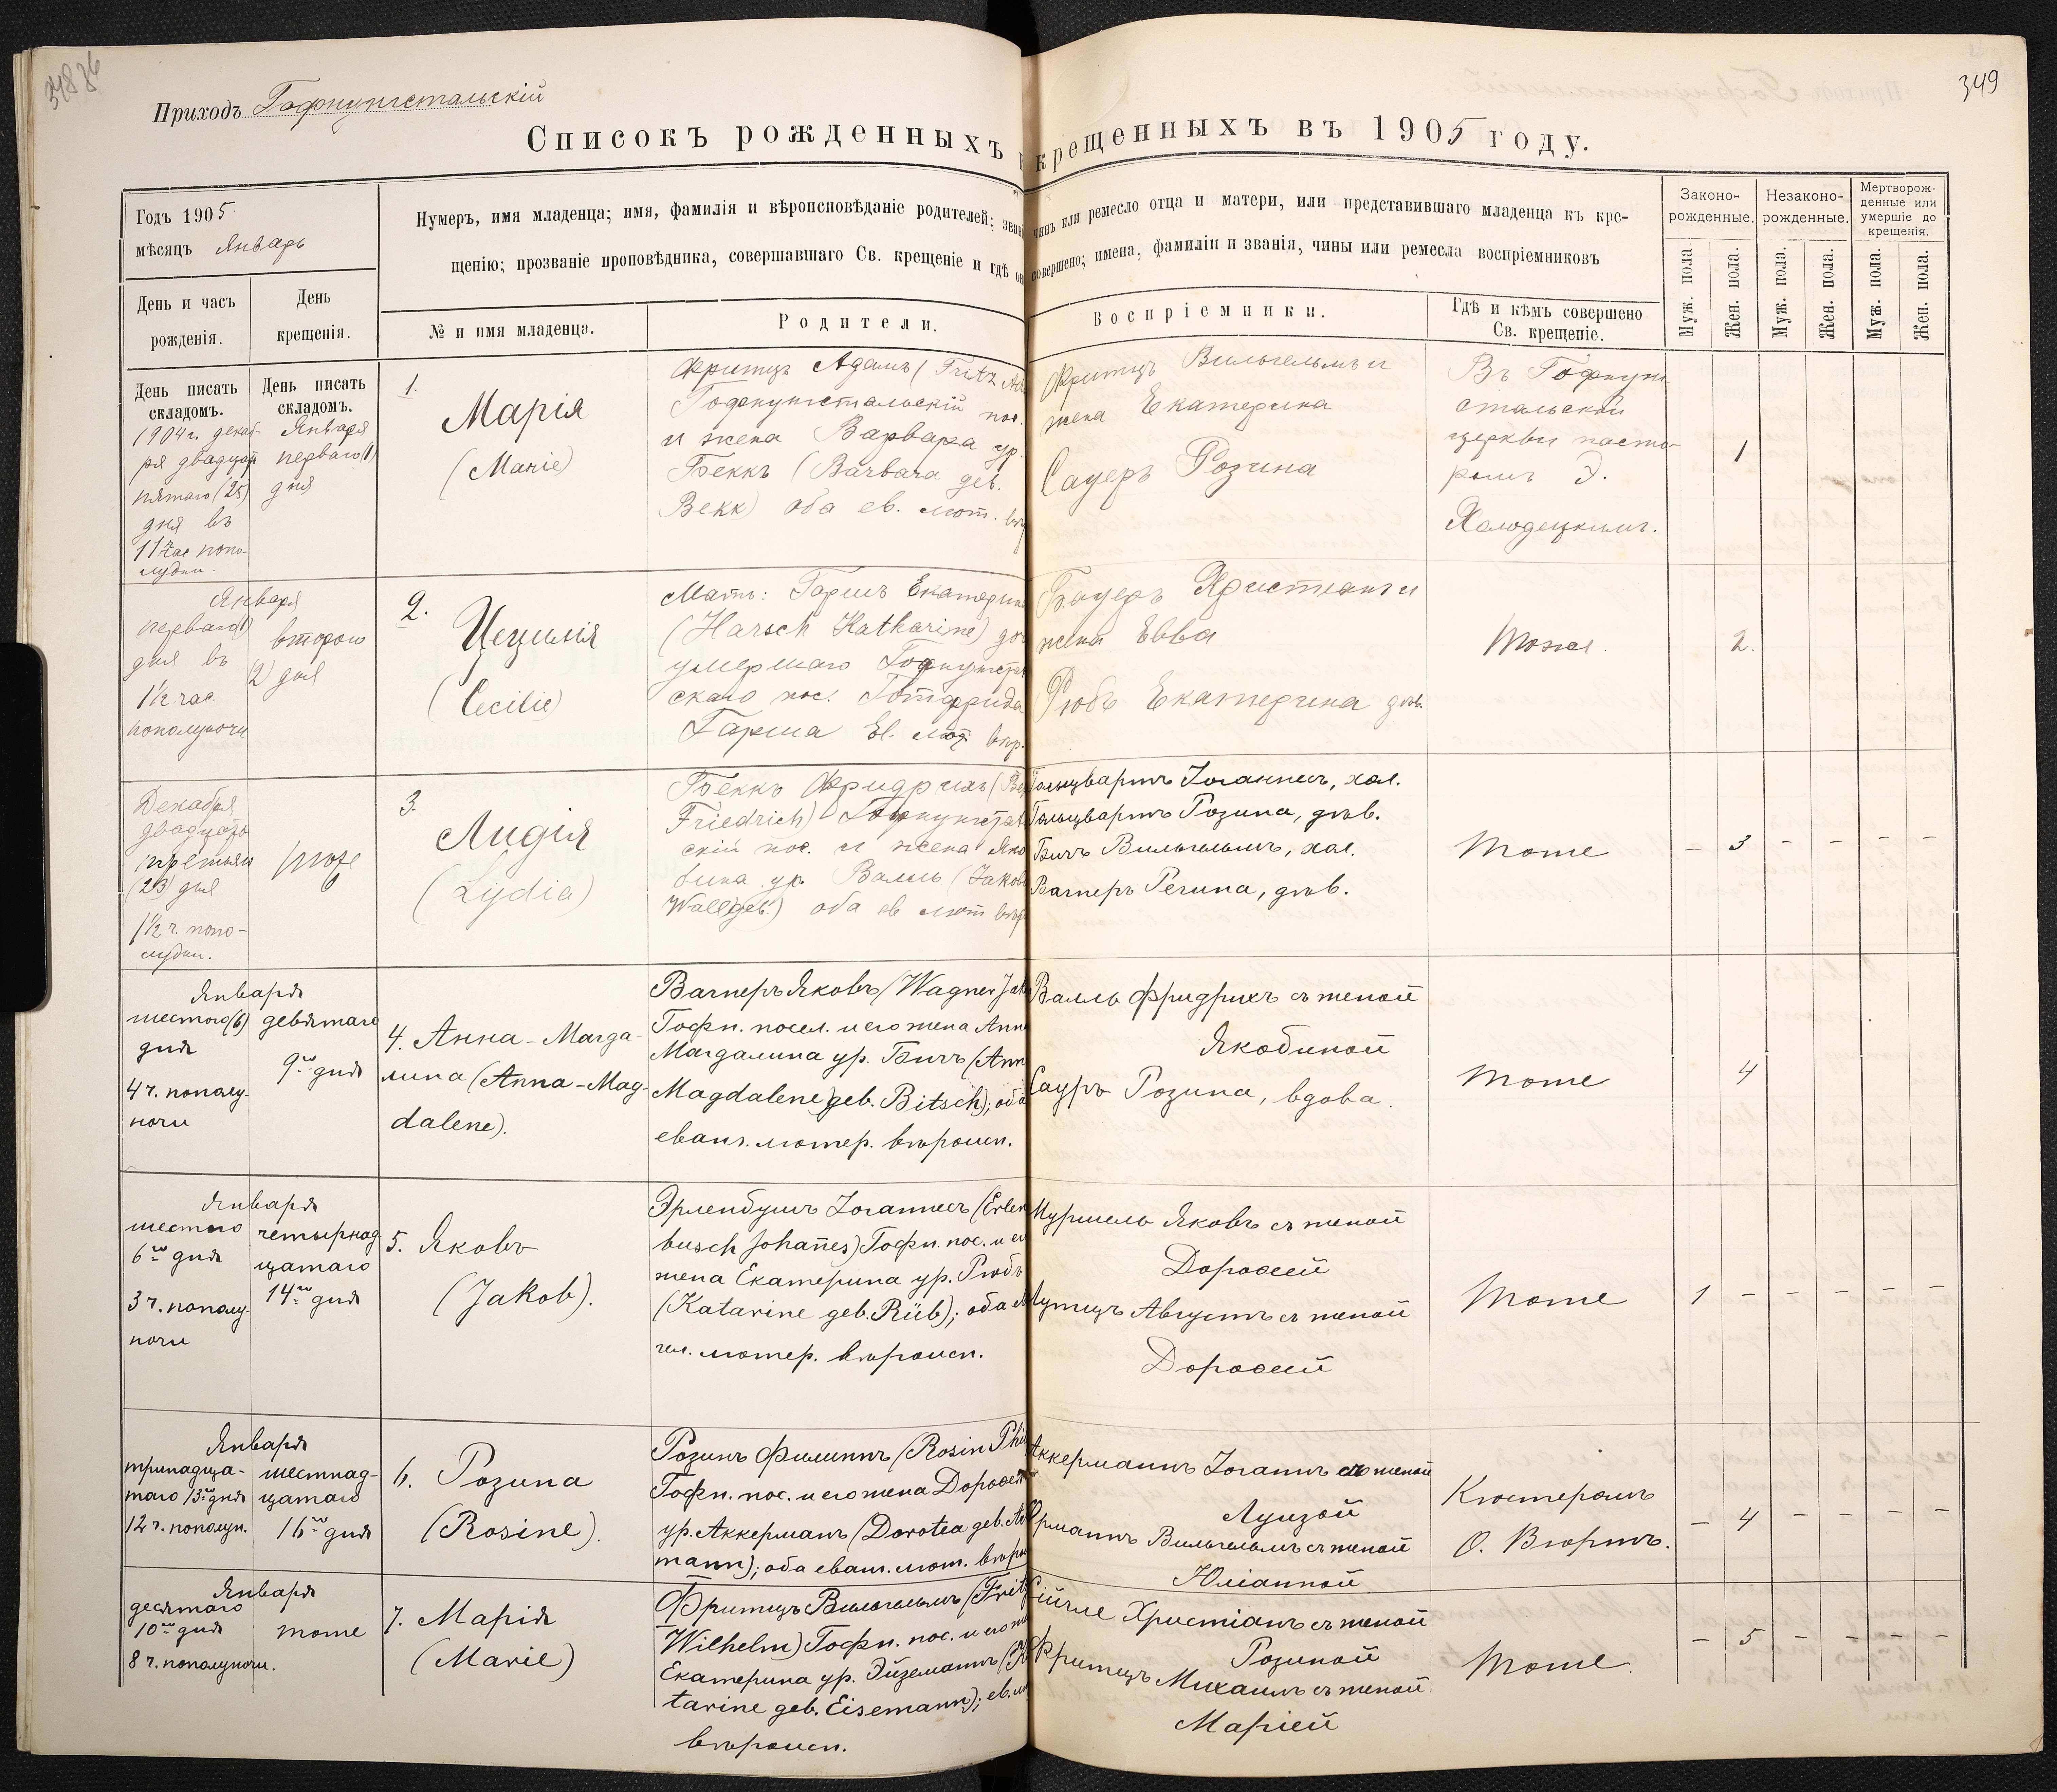 349
Приходъ Гофнунгстальскій
Списокъ рожденныхъ
крещенныхъ въ 1905 году.
Годъ 1905
мѣсяцъ Январь
День и часъ
рожденія.
День
крещенія.
Нумеръ, имя младенца; имя, фамилія и вѣроисповѣданіе родителей;
чинъ или ремесло отца и матери, или представившаго младенца къ кре-
щенію; прозваніе проповѣдника, совершавшаго Св. крещеніе и гдѣ
совершено; имена, фамиліи и званія, чины или ремесла воспріемниковъ
№ и имя младенца.
Родители.
Воспріемники.
Гдѣ и кѣмъ совершено
Св. крещеніе.
Законо-
рожденные.
Незаконо-
рожденные.
Мертворож-
денные или
умершіе до
крещенія.
Муж. пола
Жен. пола.
Муж. пола.
Жен. пола.
Муж. пола.
Жен. пола.
День писать
складомъ.
1904 г. декаб-
ря двадцать
пятаго (25)
дня въ
11 час попо-
лудни.
День писать
складомъ.
Января
перваго (1)
дня
1.
Марія
(Marie)
Фритцъ Адамъ (Fritz
Гофнунгстальскій пос.
и жена Варвара ур.
Беккъ (Barbara geb.
Bekk) оба ев. лют.
Фритцъ Вильгельмъ и
жена Екатерина
Сауеръ Розина
Въ Гофнунг
стальской
церкви пасто-
ромъ Э.
Холодецкимъ.
1
Января
перваго (1)
дня въ
1½ час.
пополуночи
второго
2) дня
2.
Цецилія
(Cecilie)
Мать: Гаршъ Екатерина
(Harsch Katharine)
умершаго Гофнунгсталь
скаго пос. Готфрида
Гарша Ев. лют. вѣр.
Бауеръ Христіанъ и
жена Евва
Рюбъ Екатерина дѣв.
Тоже.
2.
Декабря
двадцать
третьяго
(23) дня
1½ ч. попо-
лудни.
тоже
3.
Лидія
(Lydia)
Беккъ Фридрихъ
Friedrich) Гофнунгсталь
скій пос. и жена Яко
бина ур. Валль (Jakob
Wall geb.) оба ев лют вѣр
Гольцвартъ Іоаннесъ, хол.
Гольцвартъ Розина, дѣв.
Бичъ Вильгельмъ, хол.
Вагнеръ Регина, дѣв.
Тоже
— 3 — — — —
Января
шестого (6)
дня
4 ч. пополу-
ночи
девятаго
9го дня
4. Анна-Магда-
лина (Anna-Mag-
dalene).
Вагнеръ Яковъ (Wagner
Гофн. посел. и его жена
Магдалина ур. Бичъ
Magdalene geb. Bitsch); оба
еванг. лютер. вѣроисп.
Валль Фридрихъ съ женой
Якобиной
Сауръ Розина, вдова.
Тоже
4
Января
шестого
6го дня
3 ч. пополу-
ночи
четырнад
цатаго
14го дня
5. Яковъ
(Jakob).
Эрленбушъ Іоаннесъ (Erlen
busch Johañes) Гофн. пос. и
жена Екатерина ур. Рюбъ
(Katarine geb. Rüb); оба
гел. лютер. вѣроисп.
Муршель Яковъ съ женой
Дорофеей
Лутцъ Августъ съ женой
Дорофеей
Тоже
1 — — — — —
Января
тринадца-
таго 13го дня
12 ч. пополун.
шестнад-
цатаго
16го дня
6. Розина
(Rosine).
Розинъ Филиппъ (Rosin
Гофн. пос. и его жена
ур. Аккерманъ (Dorotea geb.
mann); оба еванг. лют.
Аккерманнъ Іоганнъ съ женой
Луизой
Вильгельмъ съ женой
Юліанной
Кюстеромъ
О. Вюртъ.
— 4 — — — —
Января
десятаго
10го дня
8 ч. пополуночи.
тоже
7. Марія
(Marie)
Фритцъ Вильгельмъ (Fritz
Wilhelm) Гофн. пос. и его
Екатерина ур. Эйземаннъ
tarine geb. Eisemann);
вѣроисп.
Христіанъ съ женой
Розиной
Фритцъ Михаилъ съ женой
Маріей
Тоже.
— 5 — — — —